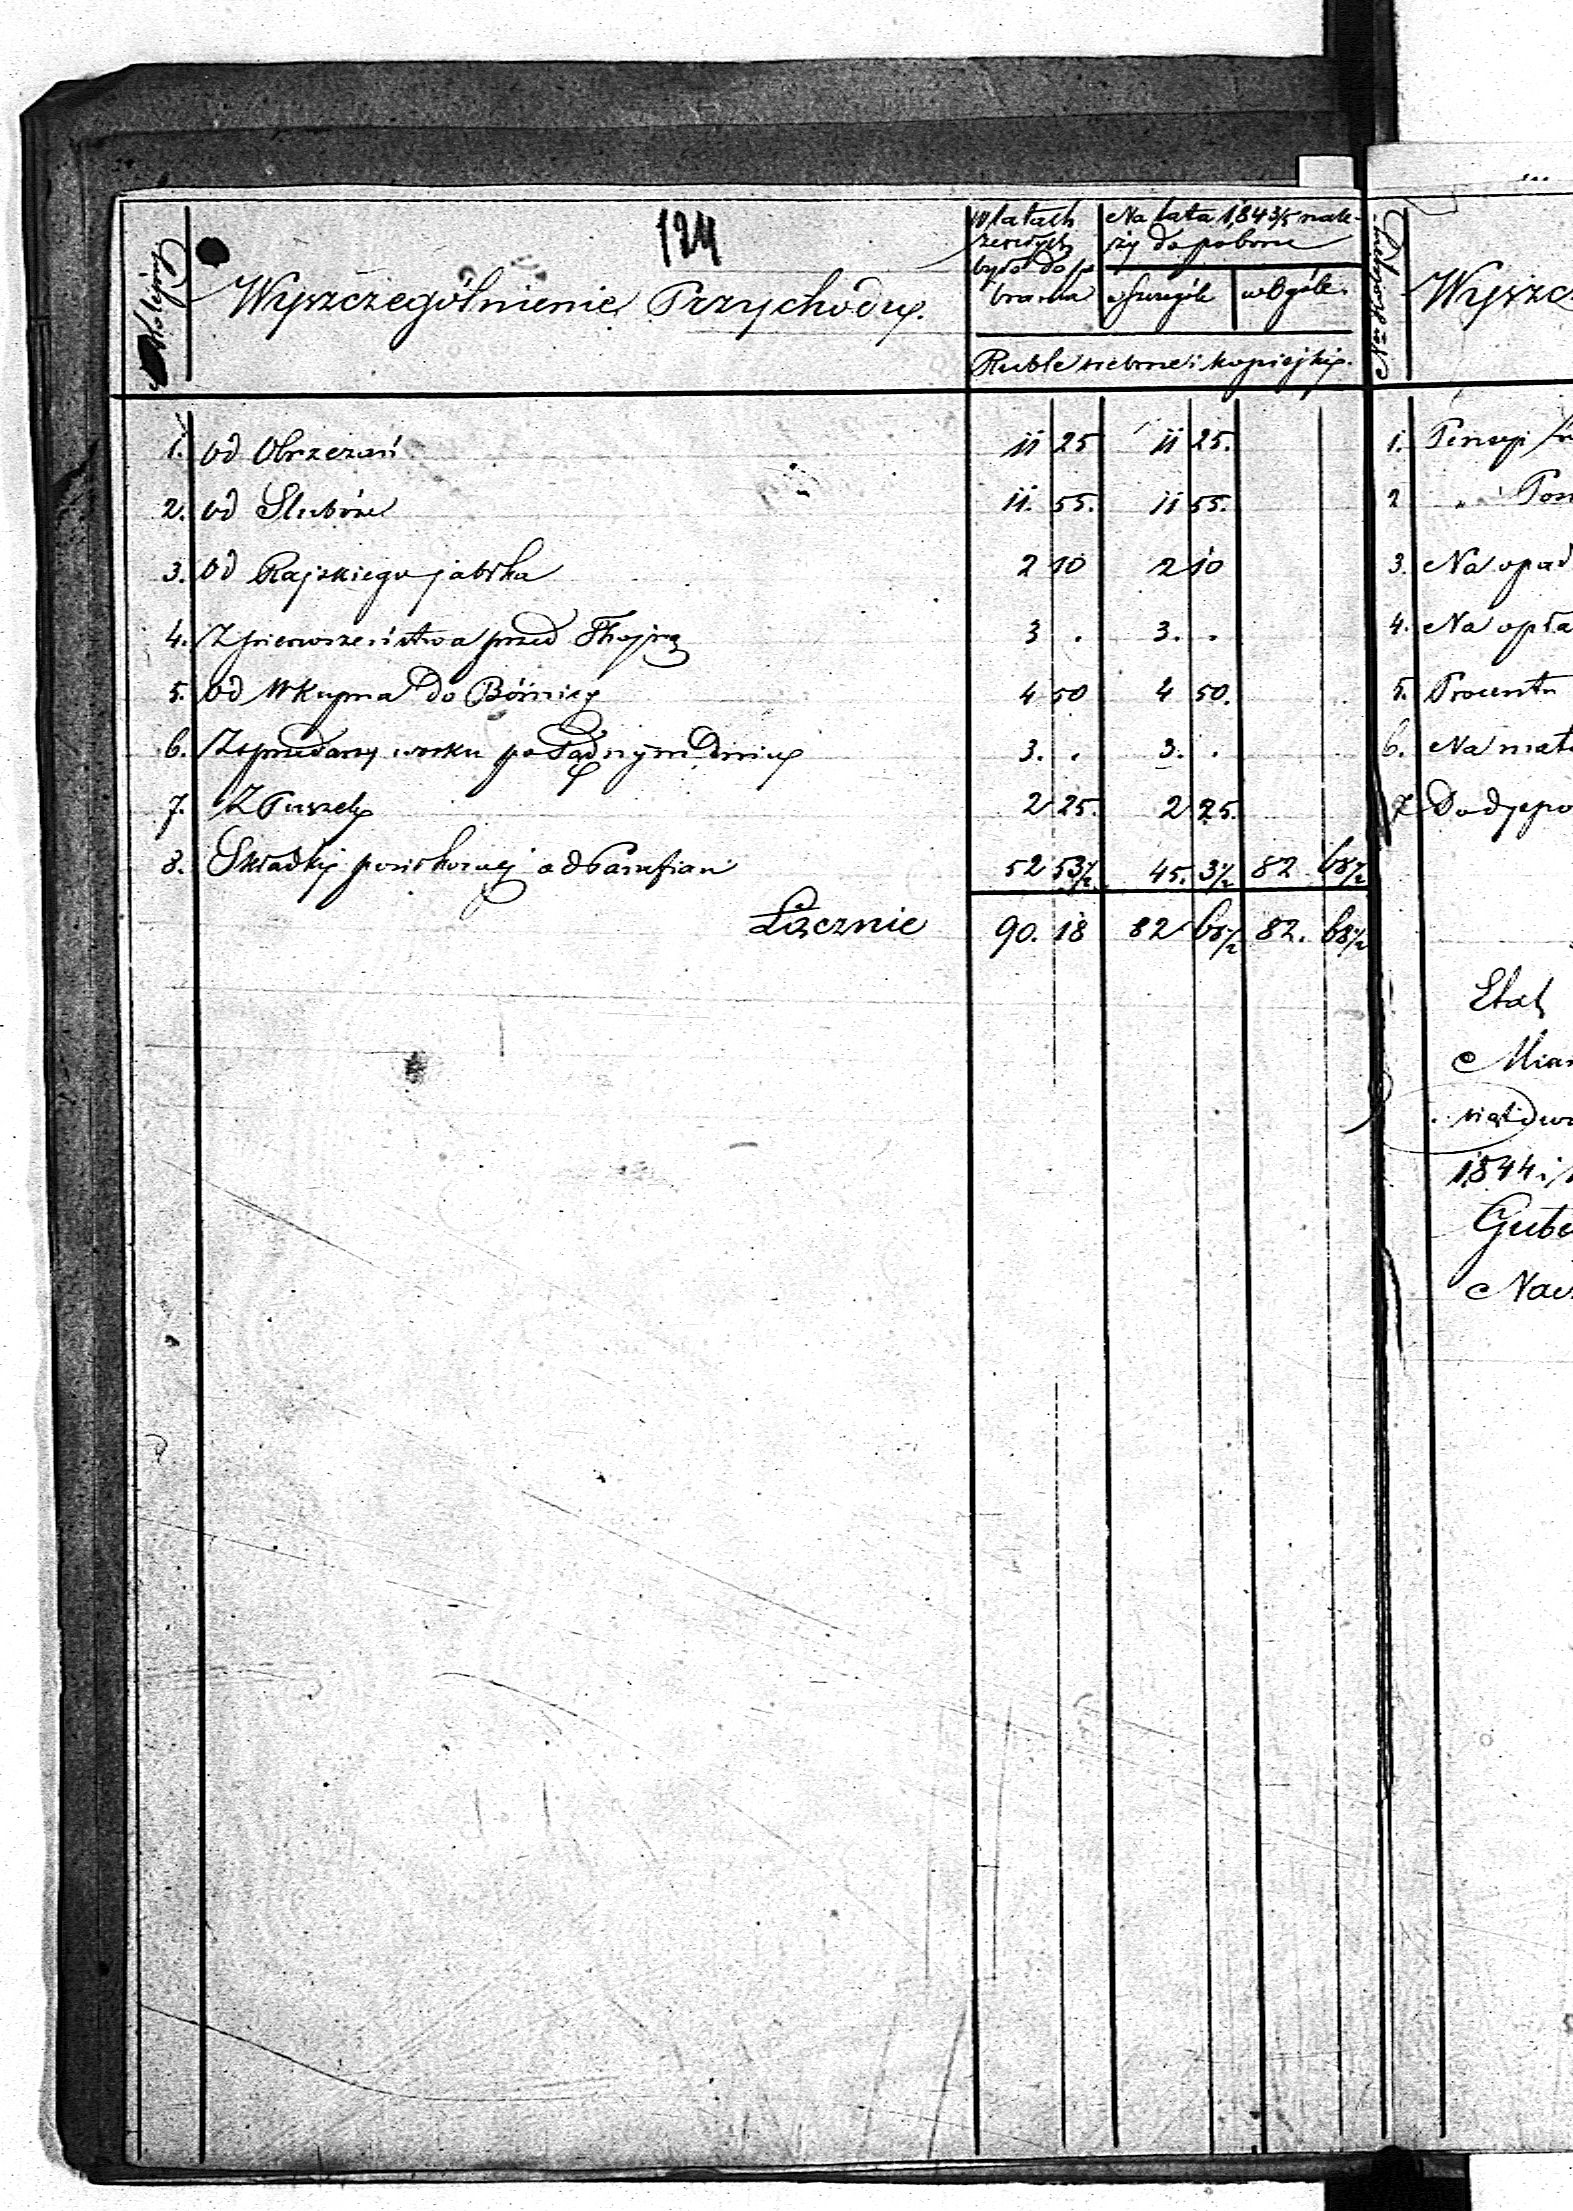 124
Kolejny
Wyszczególnienie Przychodu.
W latach
zeszłych
było do po
brania
Na lata 1843/5 nale-
ży do poboru
w Szczególe
w Ogóle.
Ruble srebrne i kopiejki.
1. od Obrzezań 11 25 11 25.
2. od Slubów 11. 55. 11 55.
3. od Rajskiego jabłka 2 10 2 10
4. Z pierwszeństwa przed Thojrą 3 . 3. .
5. od Wkupna do Bóźnicy 4 50 4 50.
6. Z sprzedaży wosku po Sądnym Dniu 3. . 3. .
7. Z Puszek 2 25. 2 25.
8. Składki od Parafian 52 53½ 45. 3½ 82 68½
Łącznie 90. 18 82 68½ 82. 68½
No Kolejny
Wyszc
1. Pensyi
2 " Pom
3. Na opał
4. Na opła
5. Procentu
6. Na mat
7 Do dyspo
Etat
Mias
1844 i
Gube
Nacz